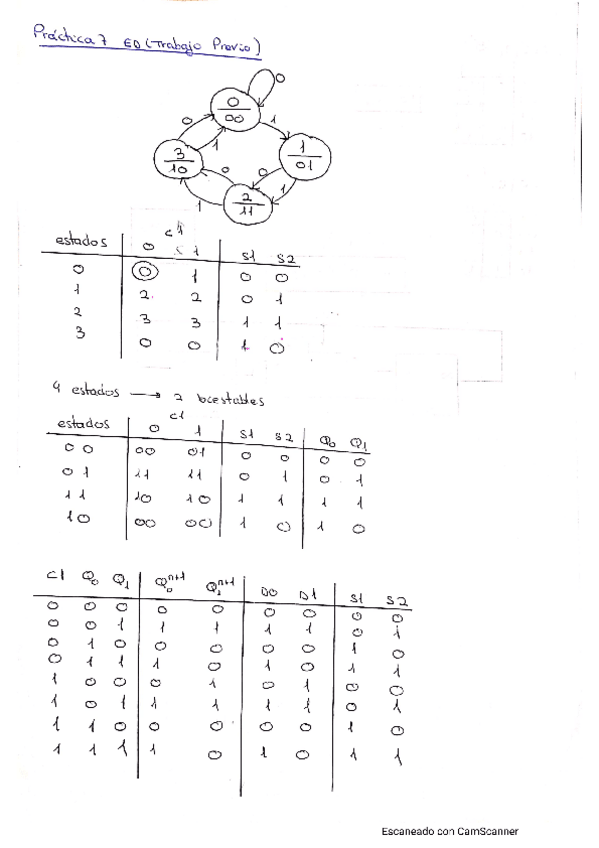 Práctica 7 ED (Trabajo Previo)
0
0
00
0
1
1
3
10
1
01
0
0
2
11
1
1
c1
estados 0 1 S1 S2
0 0 1 0 0
1 2 2 0 1
2 3 3 1 1
3 0 0 1 0
4 estados → 2 biestables
c1
estados 0 1 S1 S2 Q0 Q1
00 00 01 0 0 0 0
01 11 11 0 1 0 1
11 10 10 1 1 1 1
10 00 00 1 0 1 0
C1 Q0 Q1 Q0^n+1 Q1^n+1 D0 D1 S1 S2
0 0 0 0 0 0 0 0 0
0 0 1 1 1 1 1 0 1
0 1 0 0 0 0 0 1 0
0 1 1 1 0 1 0 1 1
1 0 0 0 1 0 1 0 0
1 0 1 1 1 1 1 0 1
1 1 0 0 0 0 0 1 0
1 1 1 1 0 1 0 1 1
Escaneado con CamScanner